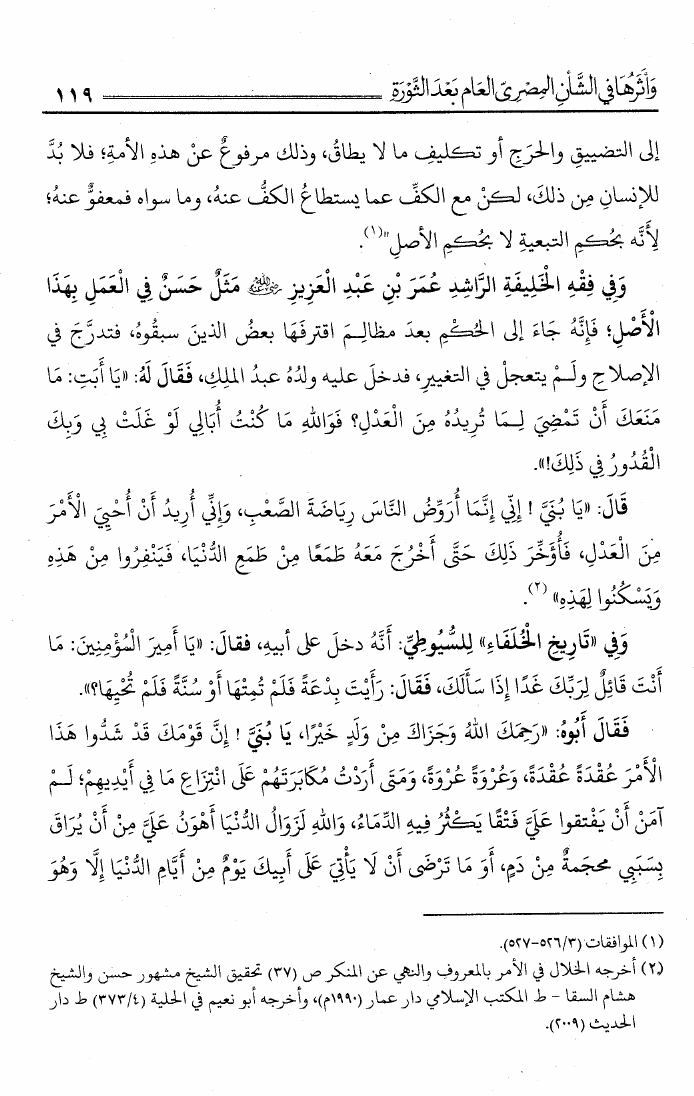 وَأَثَرُهَا فِي الشَّأْنِ الْمِصْرِيِّ الْعَامِ بَعْدَ الثَّوْرَةِ ١١٩
إلى التضييقِ والحَرَجِ أو تكليفِ ما لا يطاقُ، وذلك مرفوعٌ عنْ هذهِ الأمةِ؛ فلا بُدَّ
للإنسانِ مِن ذلكَ، لكنْ مع الكفِّ عما يستطاعُ الكفُّ عنهُ، وما سواه فمعفوٌّ عنهُ؛
لِأَنَّه بحُكمِ التبعيةِ لا بحُكمِ الأصلِ"(١).
وَفِي فِقْهِ الْخَلِيفَةِ الرَّاشِدِ عُمَرَ بْنِ عَبْدِ الْعَزِيزِ رضي الله عنه مَثَلٌ حَسَنٌ فِي الْعَمَلِ بِهَذَا
الْأَصْلِ؛ فَإِنَّهُ جَاءَ إلى الحُكْمِ بعدَ مظالِمَ اقترفَهَا بعضُ الذينَ سبقُوهُ، فتدرَّجَ في
الإصلاحِ ولَـمْ يتعجلْ في التغييرِ، فدخلَ عليه ولدُهُ عبدُ الملِكِ، فَقَالَ لَهُ: «يَا أَبَتِ: مَا
مَنَعَكَ أَنْ تَمْضِيَ لِـمَا تُرِيدُهُ مِنَ الْعَدْلِ؟ فَوَاللهِ مَا كُنْتُ أُبَالِي لَوْ غَلَتْ بِي وَبِكَ
الْقُدُورُ فِي ذَلِكَ!».
قَالَ: «يَا بُنَيَّ ! إِنِّي إِنَّمَا أُرَوِّضُ النَّاسَ رِيَاضَةَ الصَّعْبِ، وَإِنِّي أُرِيدُ أَنْ أُحْيِيَ الْأَمْرَ
مِنَ الْعَدْلِ، فَأُؤَخِّرَ ذَلِكَ حَتَّى أَخْرُجَ مَعَهُ طَمَعًا مِنْ طَمَعِ الدُّنْيَا، فَيَنْفِرُوا مِنْ هَذِهِ
وَيَسْكُنُوا لِهَذِهِ» (٢).
وَفِي «تَارِيخِ الْخُلَفَاءِ» لِلسُّيُوطِيِّ: أَنَّهُ دخلَ على أبيهِ، فقالَ: «يَا أَمِيرَ الْمُؤْمِنِينَ: مَا
أَنْتَ قَائِلٌ لِرَبِّكَ غَدًا إِذَا سَأَلَكَ، فَقَالَ: رَأَيْتَ بِدْعَةً فَلَمْ تُمِتْهَا أَوْ سُنَّةً فَلَمْ تُحْيِهَا؟».
فَقَالَ أَبُوهُ: «رَحِمَكَ اللهُ وَجَزَاكَ مِنْ وَلَدٍ خَيْرًا، يَا بُنَيَّ ! إِنَّ قَوْمَكَ قَدْ شَدُّوا هَذَا
الْأَمْرَ عُقْدَةً عُقْدَةً، وَعُرْوَةً عُرْوَةً، وَمَتَى أَرَدْتُ مُكَابَرَتَهُمْ عَلَى انْتِزَاعِ مَا فِي أَيْدِيهِمْ؛ لَـمْ
آمَنْ أَنْ يَفْتقوا عَلَيَّ فَتْقًا يَكْثُرُ فِيهِ الدِّمَاءُ، وَاللهِ لَزَوَالُ الدُّنْيَا أَهْوَنُ عَلَيَّ مِنْ أَنْ يُرَاقَ
بِسَبَبِي محجمةٌ مِنْ دَمٍ، أَوَ مَا تَرْضَى أَنْ لَا يَأْتِيَ عَلَى أَبِيكَ يَوْمٌ مِنْ أَيَّامِ الدُّنْيَا إِلَّا وَهُوَ
(١) الموافقات (٣/ ٥٢٦-٥٢٧).
(٢) أخرجه الخلال في الأمر بالمعروف والنهي عن المنكر ص (٣٧) تحقيق الشيخ مشهور حسن والشيخ
هشام السقا - ط المكتب الإسلامي دار عمار (١٩٩٠م)، وأخرجه أبو نعيم في الحلية (٤/ ٣٧٣) ط دار
الحديث (٢٠٠٩).